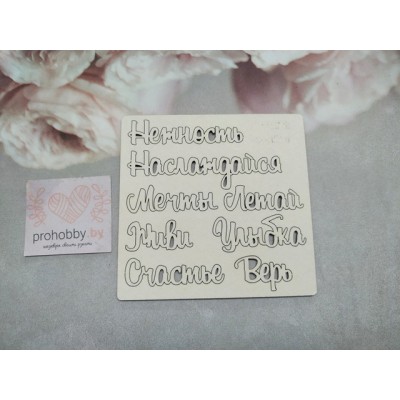 Нежность
Наслаждайся
Мечты Летай
Живи Улыбка
Счастье Верь
prohobby.by